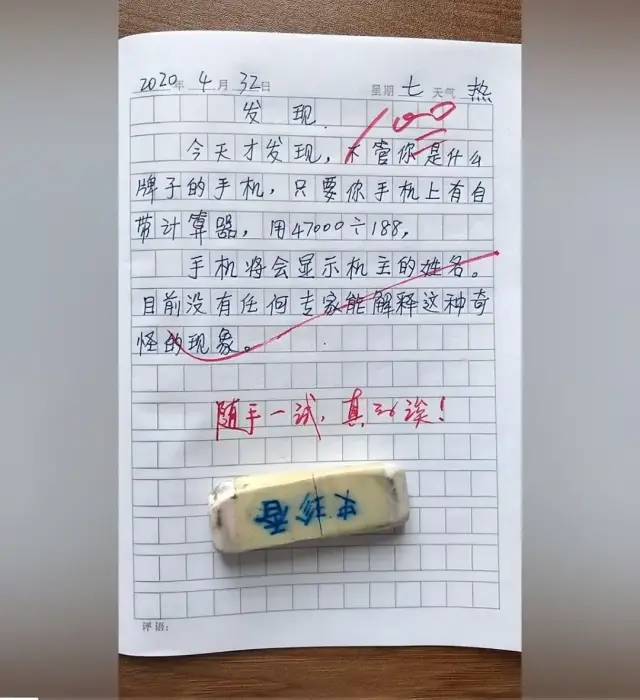 2020年4月32日 星期七 天气热
发现
100
今天才发现，不管你是什么
牌子的手机，只要你手机上有自
带计算器，用47000÷188，
手机将会显示机主的姓名。
目前没有任何专家能解释这种奇
怪的现象。
随手一试，真250诶！
史珍香
评语：